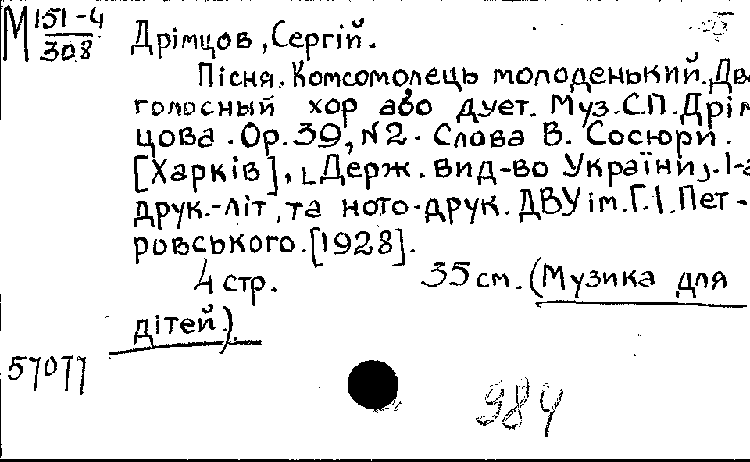 М 151-4
308
Дрімцов, Сергій.
Пісня. Комсомолець молоденький. Дво
голосный хор або дует. Муз. С.П. Дрім
цова. Op. 39, N2. Слова В. Сосюри.
[Харків], Держ. вид-во України, 1-а
друк.-літ, та ното-друк. ДВУ ім. Г.І. Пет-
ровського. [1928].
4 стр. 35 см. (Музика для
дітей.)
57077
984